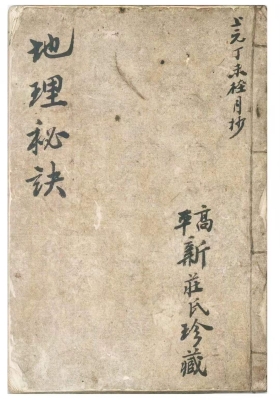 上元丁未桂月抄
地理秘訣
高平新莊氏珍藏